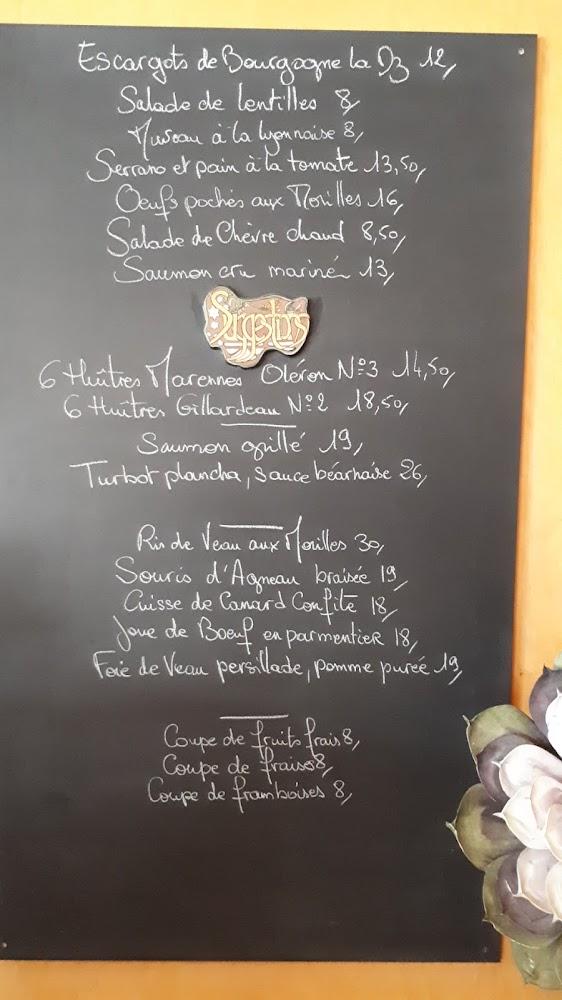 Escargots de Bourgogne la Dz 12,
Salade de lentilles 8,
Museau à la lyonnaise 8,
Serrano et pain à la tomate 13,50,
Oeufs pochés aux Morilles 16,
Salade de Chèvre chaud 8,50,
Saumon cru mariné 13,
Suggestions
6 Huîtres Marennes Oléron N°3 14,50,
6 Huîtres Gillardeau N°2 18,50,
Saumon grillé 19,
Turbot plancha, sauce béarnaise 26,
Ris de Veau aux Morilles 30,
Souris d'Agneau braisée 19,
Cuisse de Canard Confite 18,
Joue de Boeuf en parmentier 18,
Foie de Veau persillade, pomme purée 19,
Coupe de fruits frais 8,
Coupe de fraises 8,
Coupe de framboises 8,